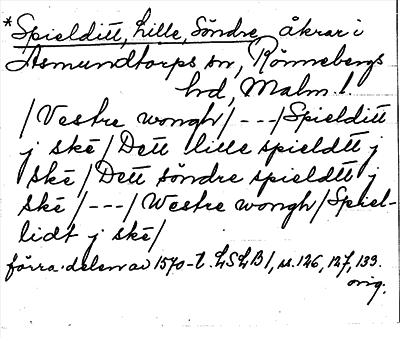 *Spielditt, Lille, Söndre, åkrar i
Asmundtorps sn, Rönnebergs
hd, Malm. l.
/Vestre wongh/---/Spielditt
j ske/Dett lille spieldtt j
ske/Dett söndre spieldtt j
ske/---/Westre wongh/Spiel-
lidt j ske/
förra delen av 1570-t. LSLB1, s. 126, 127, 133.
orig.